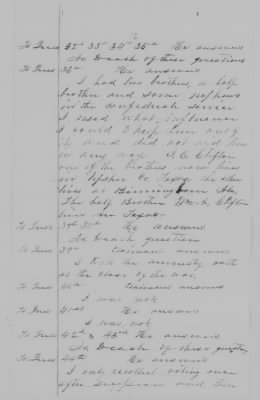 2
To Inter 32d 33d 34th 35th He answers
No to each of these questions
To Inter 36th He answers
I had two brothers, a half
brother and some nephews
in the confederate service
I used what influence
I could to keep them out of
it and did not aid them
in any way. Clifton
one of the brothers now lives
in Upshur Co. Texas the other
lives at Birmingham Ala.
The half Brother Clifton
lives in Texas
To Inter 37th 38th He answers
No to each question
To Inter 39th Claimant answers
I took the amnesty oath
at the close of the war.
To Inter 40th Claimant answers
I was not
To Inter 41st He answers
I was not
To Inter 42d & 43d He answers
No to each of these questions
To Inter 44th He answers
I not recollect voting once
after secession and then